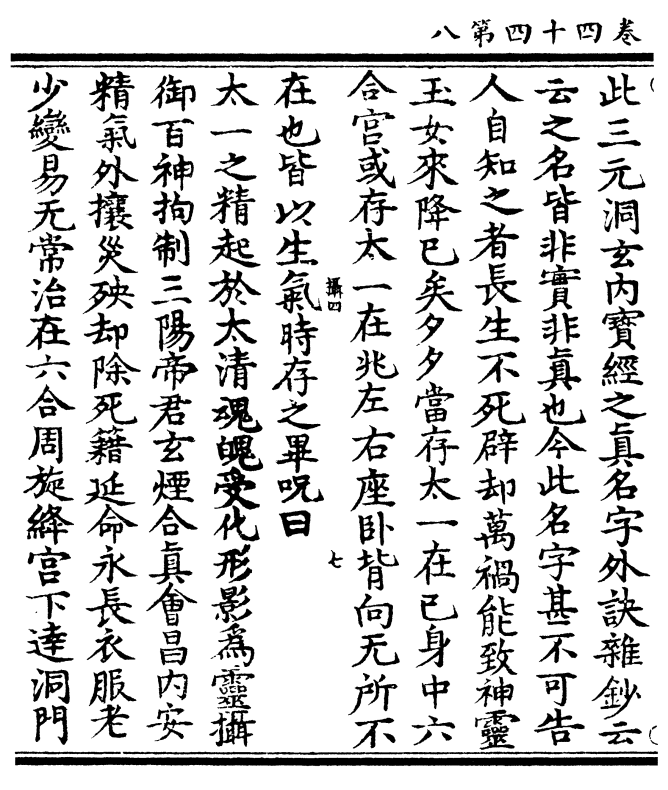 卷四十四第八
此三元洞玄內寶經之眞名字外訣雜鈔云
云之名皆非實非眞也今此名字甚不可告
人自知之者長生不死辟却萬禍能致神靈
玉女來降已矣夕夕當存太一在已身中六
合宫或存太一在兆左右座卧背向无所不
在也皆以生氣時存之畢呪曰
攝四
七
太一之精起於太清魂魄受化形影爲靈攝
御百神拘制三陽帝君玄煙合眞會昌内安
精氣外攘災殃却除死籍延命永長衣服老
少變易无常治在六合周旋絳宫下達洞門